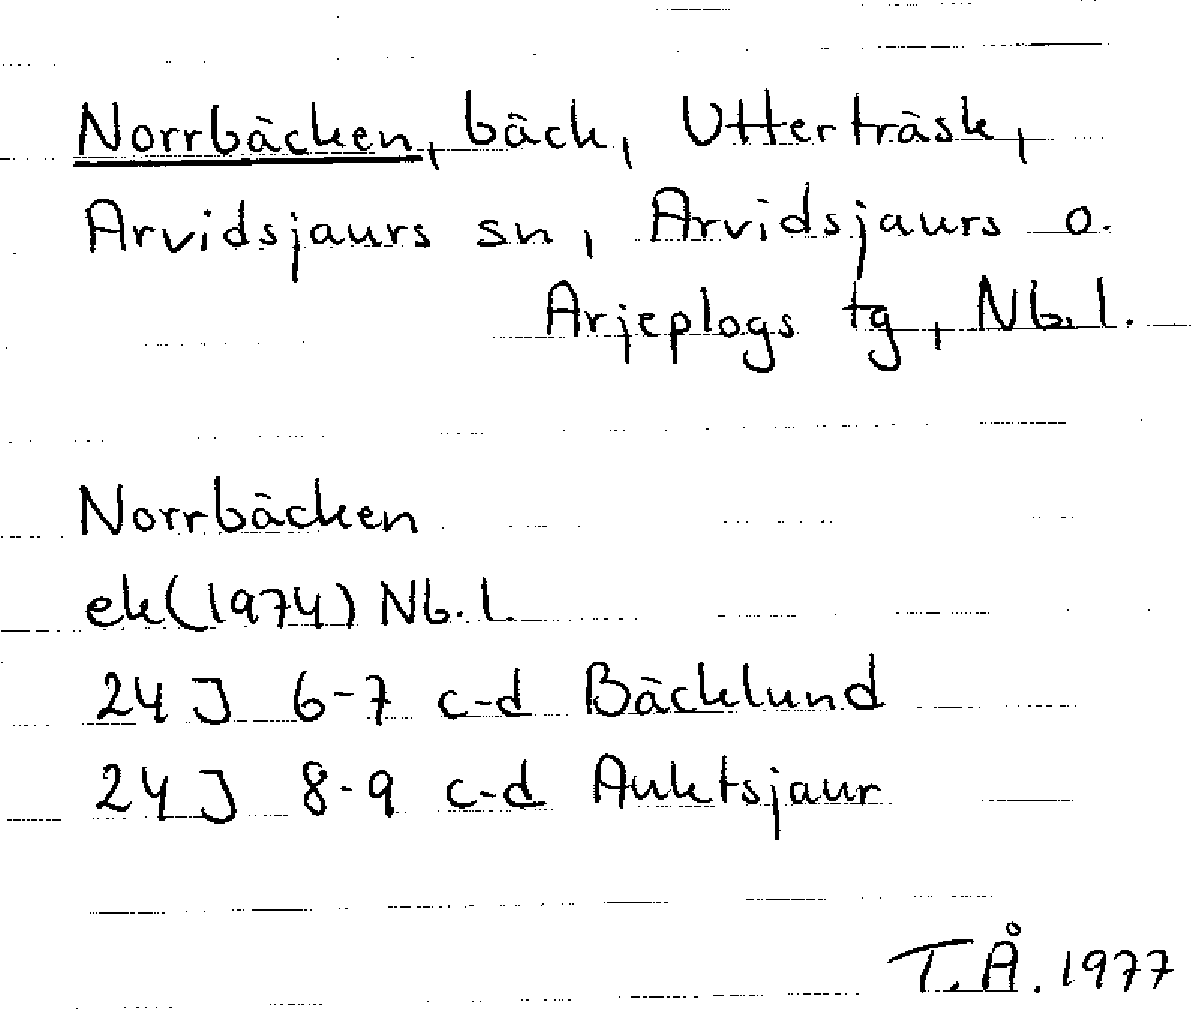 Norrbäcken, bäck, Utterträsk,
Arvidsjaurs sn, Arvidsjaurs o.
Arjeplogs tg, Nb.l.
Norrbäcken
ek(1974) Nb.l.
24 J 6-7 c-d Bäcklund
24 J 8-9 c-d Auktsjaur
T.Å. 1977